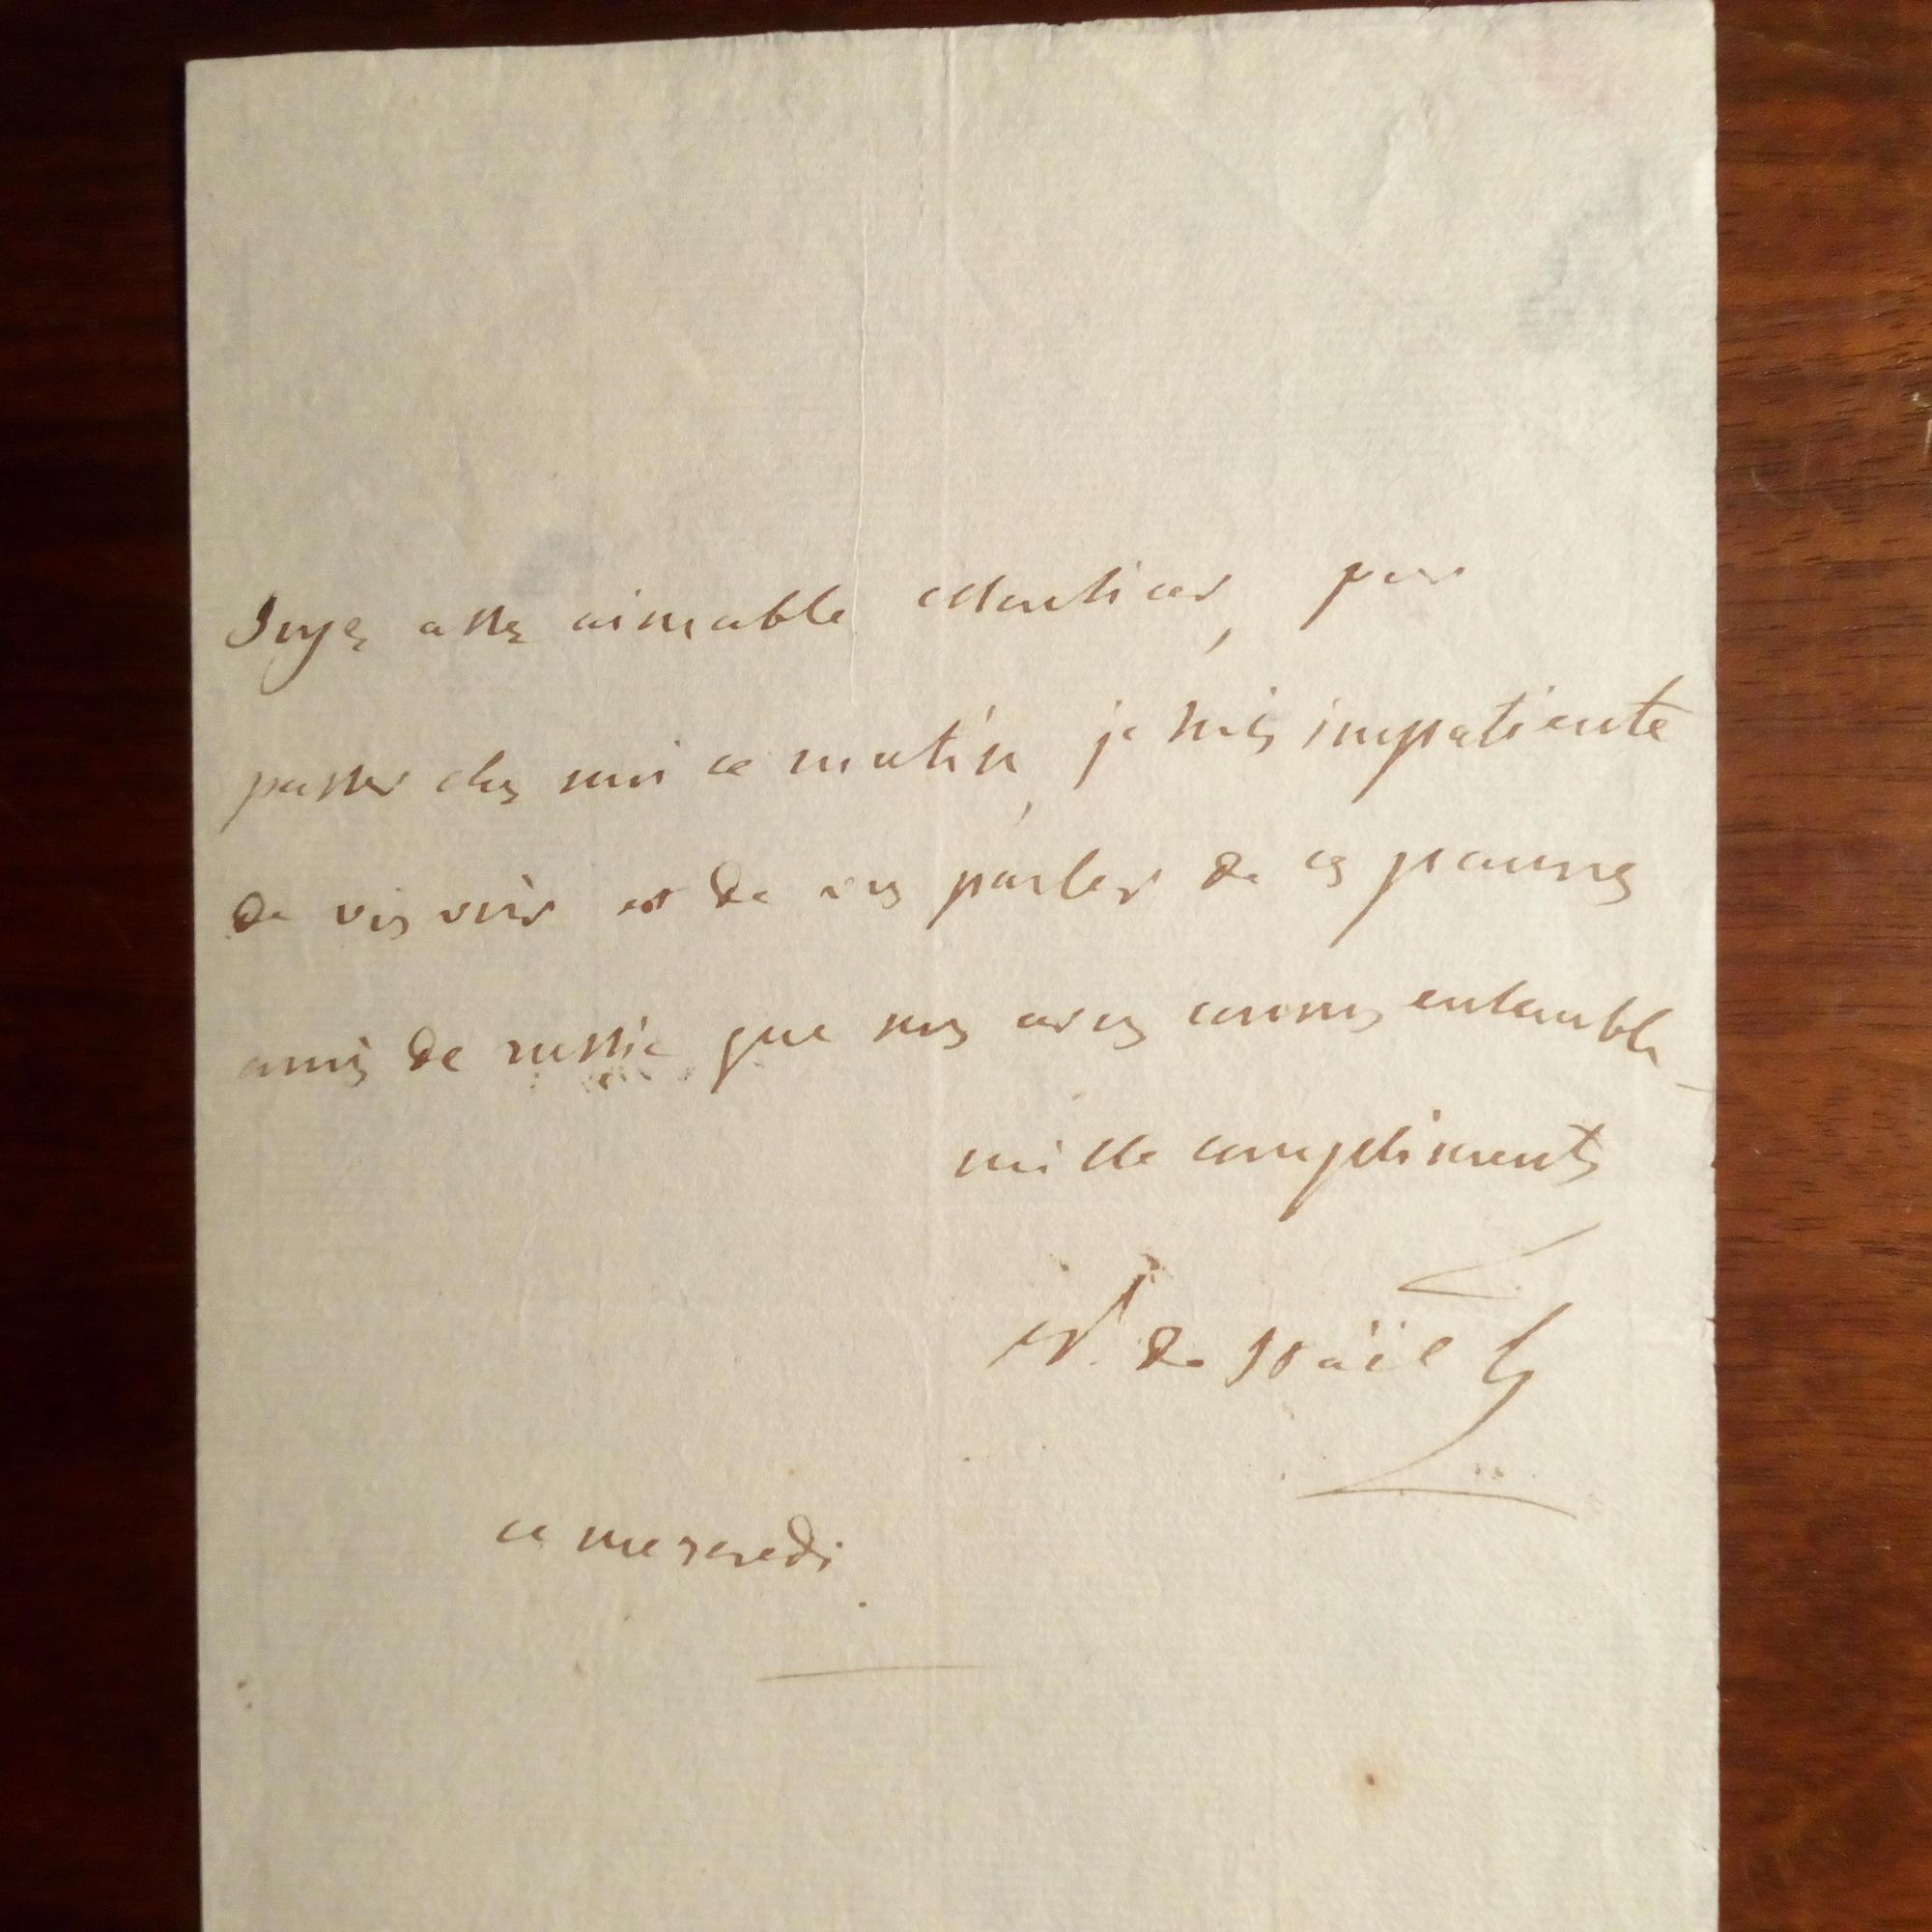 Soyez assez aimable Monsieur, pour
passer chez moi ce matin, je suis impatiente
de vous voir et de vous parler de ces pauvres
amis de russie que nous avons connus ensemble
mille compliments
N. de Staël H
ce mercredi